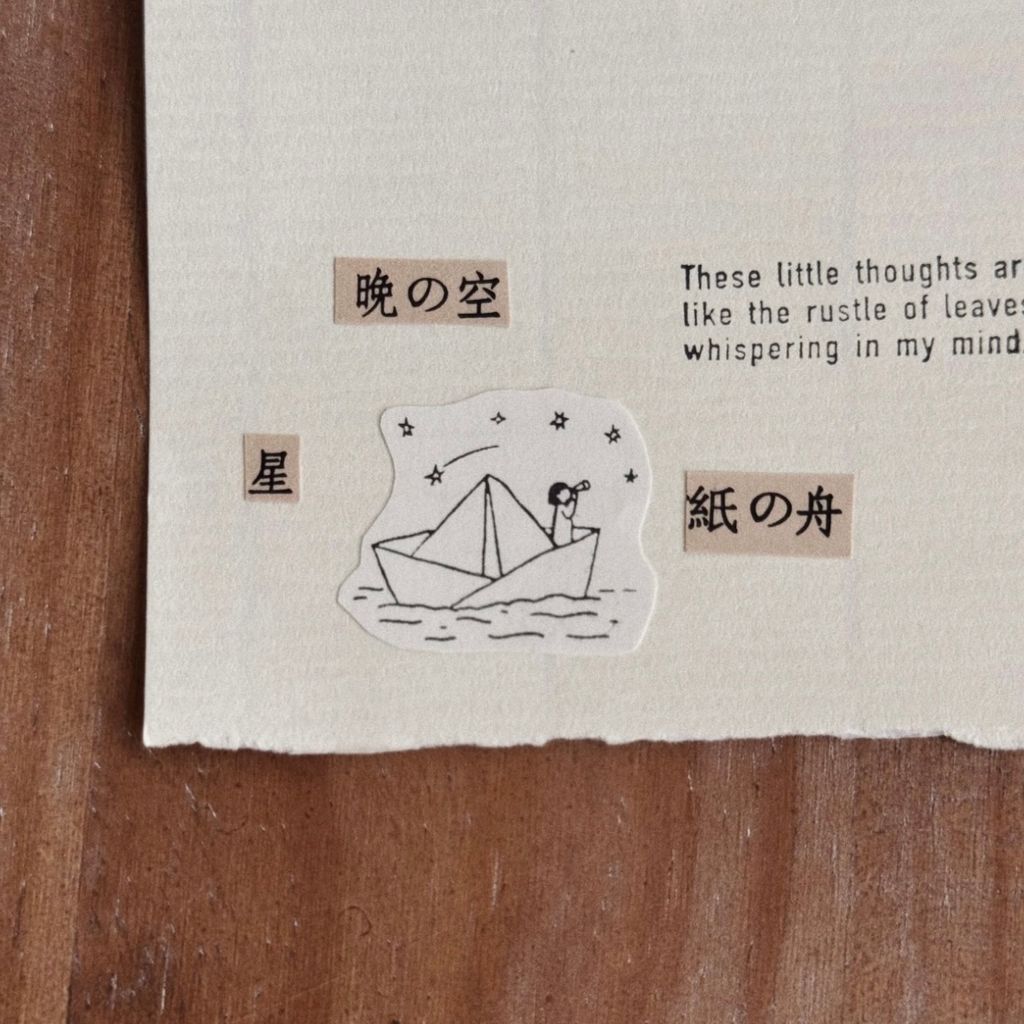 晩の空
These little thoughts ar
like the rustle of leaves
whispering in my mind.
星
紙の舟